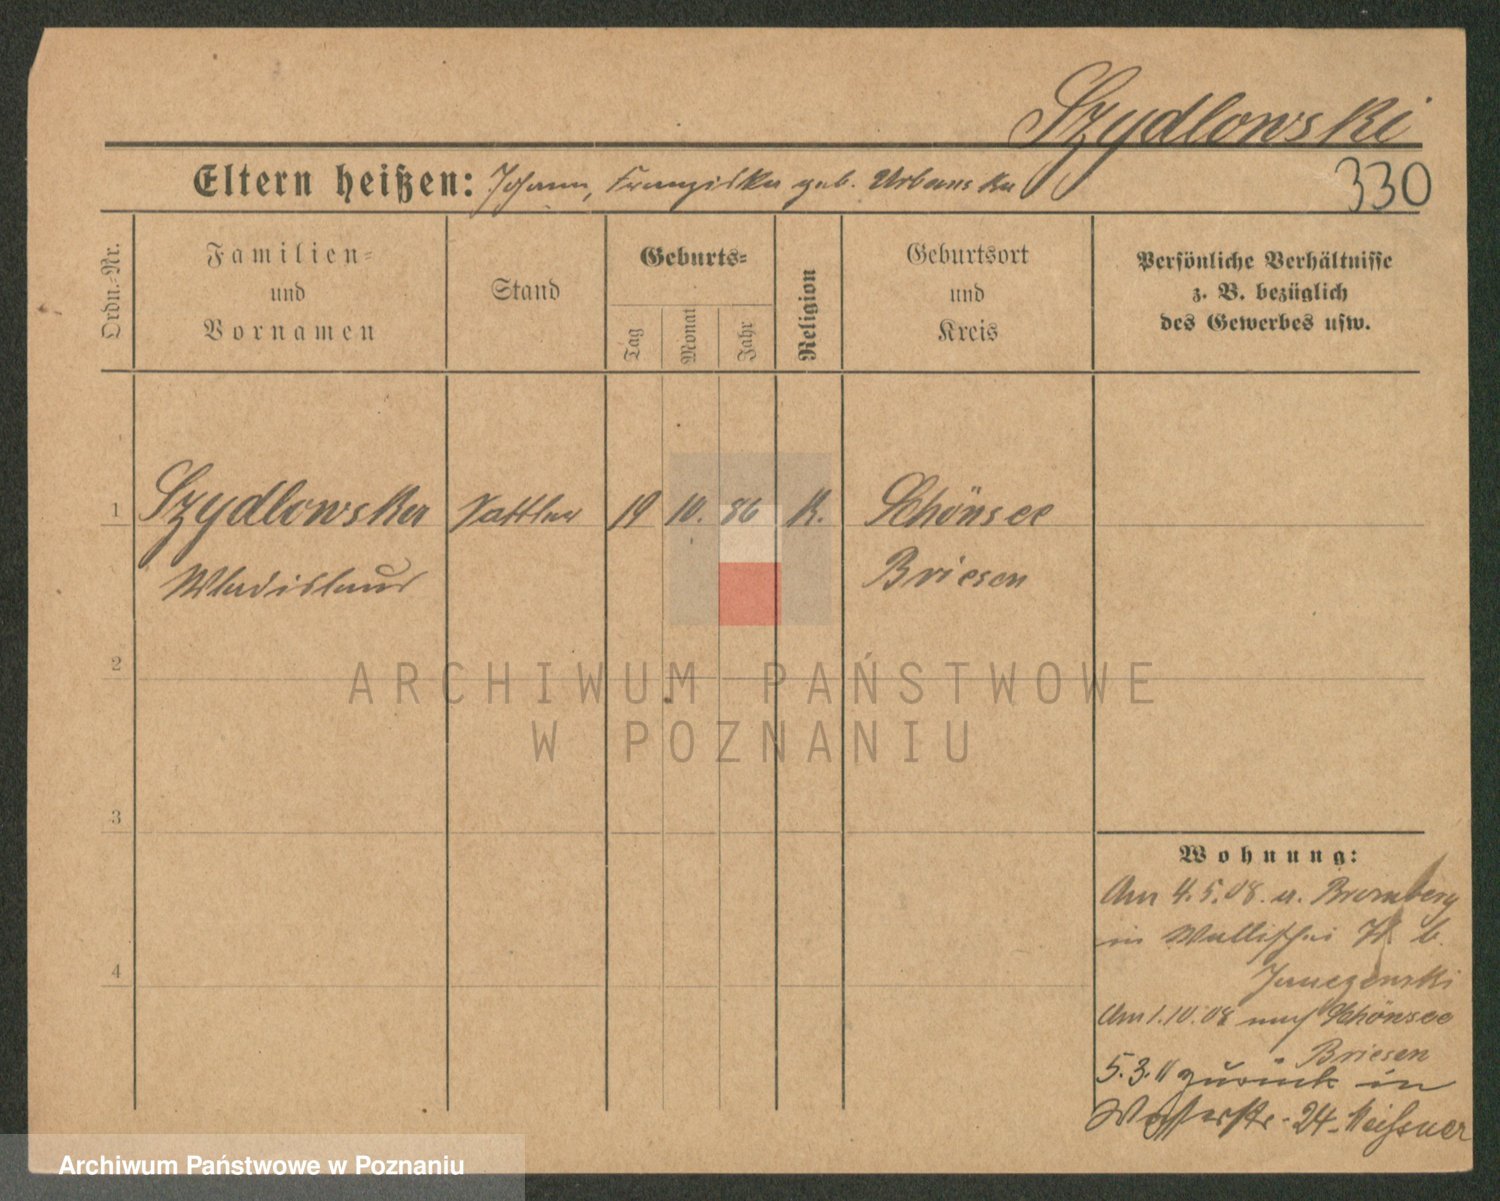 Szydlowski
Eltern heißen: Johann, Franziska geb. Urbanska
330
Ordn.-Nr.
Familien-
und
Vornamen
Stand
Geburts-
Tag
Monat
Jahr
Religion
Geburtsort
und
Kreis
Persönliche Verhältnisse
z. B. bezüglich
des Gewerbes usw.
1 Szydlowski Sattler 19 10. 86 K. Schönsee
Wladislaus Briesen
2
ARCHIWUM PAŃSTWOWE
W POZNANIU
3
Wohnung:
Am 4.5.08. a. Bromberg
in Wallischei b.
4
Am 1.10.08 nach Schönsee
Briesen
5.3.11 zurück in
Wasserstr. 24. Meissner
Archiwum Państwowe w Poznaniu